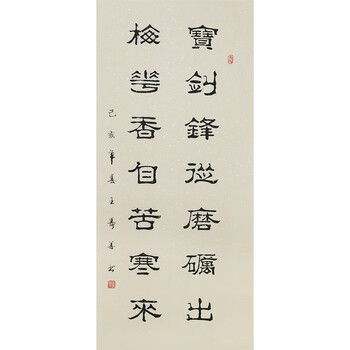 寶劍鋒從磨礪出
梅花香自苦寒來
己亥年夏王